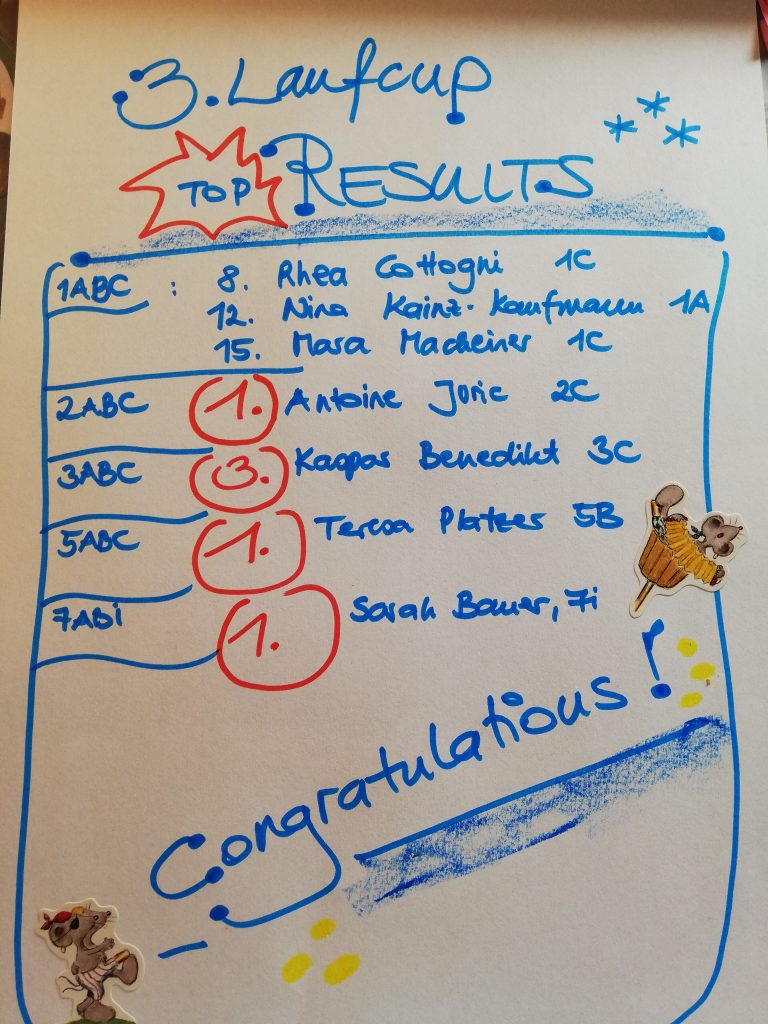 3. Laufcup
TOP RESULTS
1ABC : 8. Rhea Cottogni 1C
12. Nina Kainz-Kaufmann 1A
15. Mara Macheiner 1C
2ABC 1. Antoine Joric 2C
3ABC 3. Kaspar Benedikt 3C
5ABC 1. Teresa Platzer 5B
7ABi 1. Sarah Bauer, 7i
Congratulations!